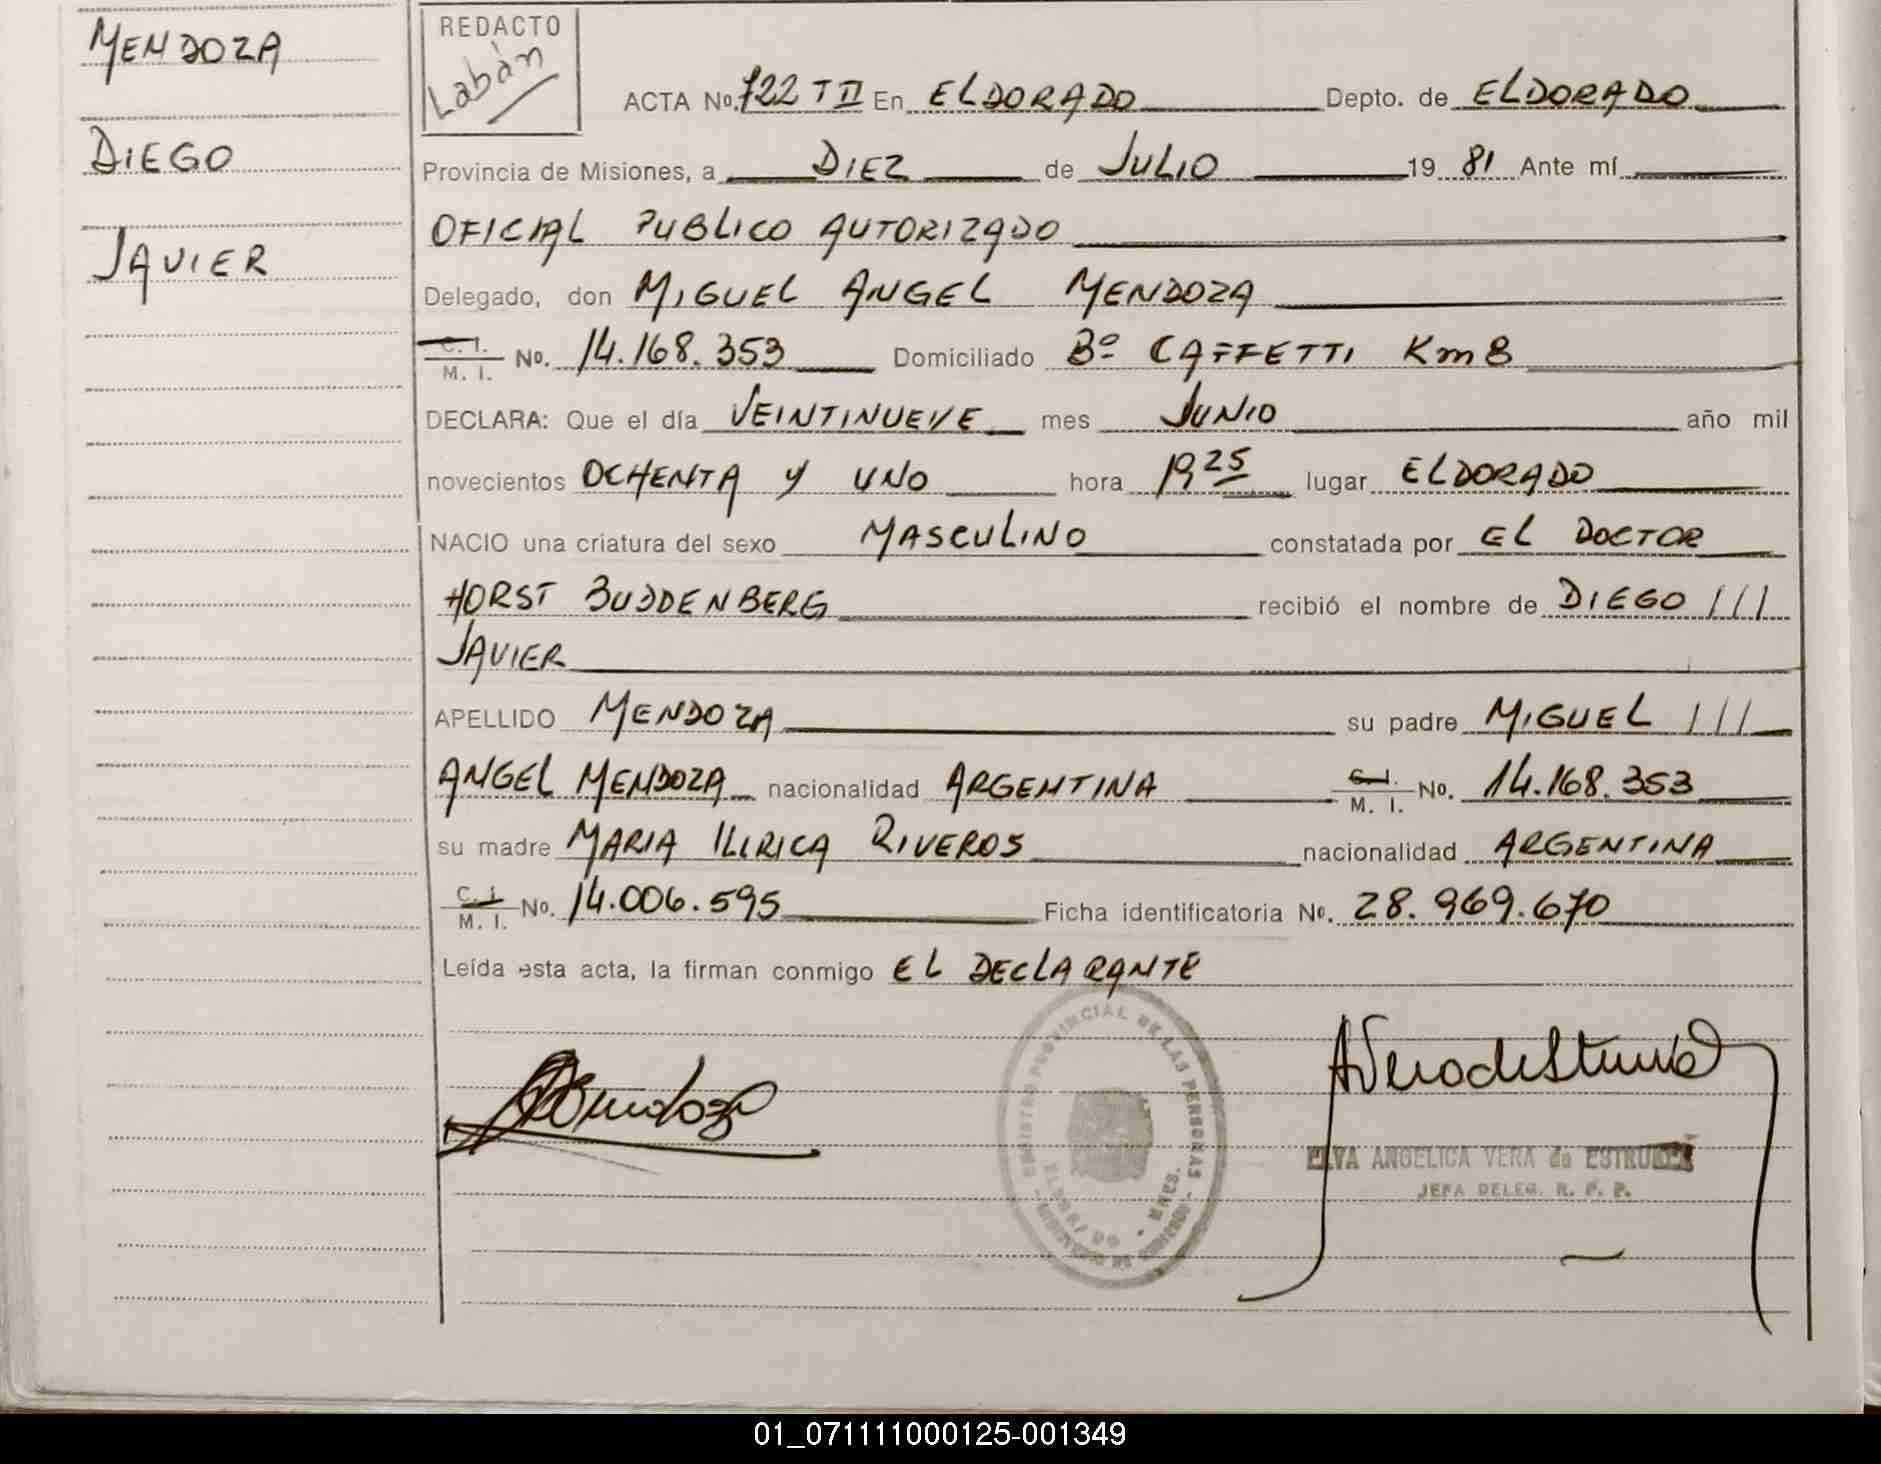 MENDOZA
DIEGO
JAVIER
REDACTO
Labán
ACTA No. 722 T II En ELDORADO Depto. de ELDORADO
Provincia de Misiones, a DIEZ de JULIO 19 81 Ante mí
OFICIAL PUBLICO AUTORIZADO
Delegado, don MIGUEL ANGEL MENDOZA
C. I.
M. I. No. 14.168.353 Domiciliado Bº CAFFETTI Km 8
DECLARA: Que el día VEINTINUEVE mes JUNIO año mil
novecientos OCHENTA Y UNO hora 19 25 lugar ELDORADO
NACIO una criatura del sexo MASCULINO constatada por EL DOCTOR
HORST BUDDENBERG recibió el nombre de DIEGO ///
JAVIER
APELLIDO MENDOZA su padre MIGUEL ///
ANGEL MENDOZA nacionalidad ARGENTINA C. I. M. I. No. 14.168.353
su madre MARIA ILIRICA RIVEROS nacionalidad ARGENTINA
C. I.
M. I. No. 14.006.595 Ficha identificatoria No. 28.969.670
Leída esta acta, la firman conmigo EL DECLARANTE
PROVINCIAL DE LAS PERSONAS
MNES.
ELVA ANGELICA VERA de
JEFA DELEG. R. P. P.
01_071111000125-001349